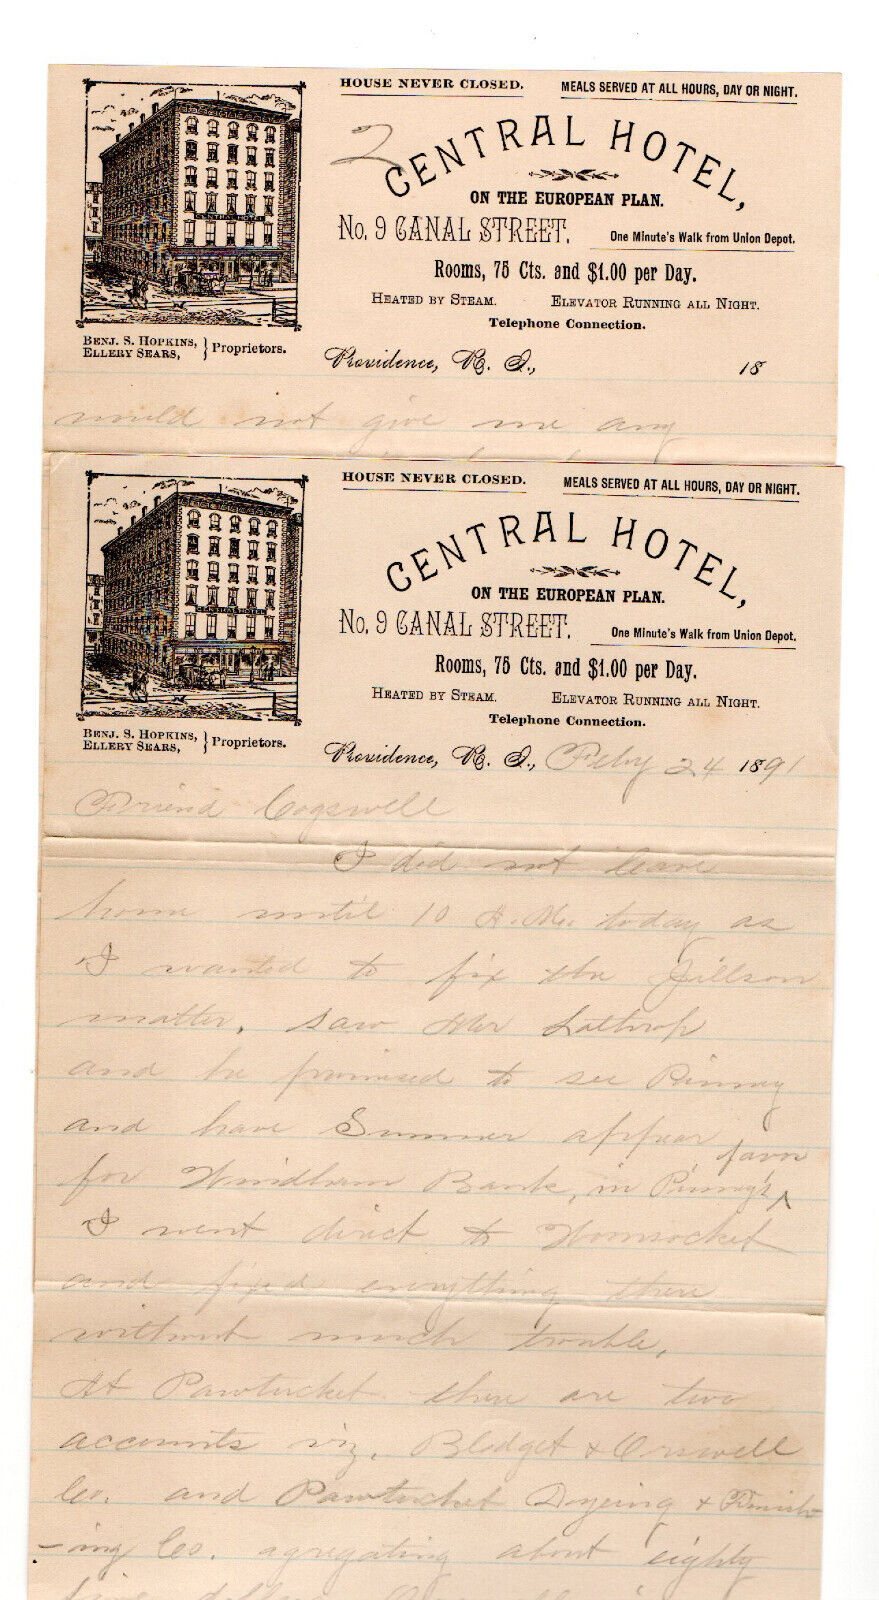 HOUSE NEVER CLOSED.
MEALS SERVED AT ALL HOURS, DAY OR NIGHT.
2
CENTRAL HOTEL,
ON THE EUROPEAN PLAN.
No. 9 CANAL STREET.
One Minute's Walk from Union Depot.
Rooms, 75 Cts. and $1.00 per Day.
HEATED BY STEAM.
ELEVATOR RUNNING ALL NIGHT.
Telephone Connection.
CENTRAL HOTEL
BENJ. S. HOPKINS,
ELLERY SEARS,
} Proprietors.
Providence, R. I., 18
would not give me any
HOUSE NEVER CLOSED.
MEALS SERVED AT ALL HOURS, DAY OR NIGHT.
CENTRAL HOTEL,
ON THE EUROPEAN PLAN.
No. 9 CANAL STREET.
One Minute's Walk from Union Depot.
Rooms, 75 Cts. and $1.00 per Day.
HEATED BY STEAM.
ELEVATOR RUNNING ALL NIGHT.
Telephone Connection.
CENTRAL HOTEL
BENJ. S. HOPKINS,
ELLERY SEARS,
} Proprietors.
Providence, R. I., Feby 24 1891
Friend Cogswell
I did not leave
home until 10 A.M. today as
I wanted to fix the Jillson
matter, saw Mr Lathrop
and he promised to see Pinney
and have Sumner appear
for Windham Bank, in Pinney's ^ favor
I went direct to Woonsocket
and fixed everything there
without much trouble.
At Pawtucket there are two
accounts viz. Blodget & Orswell
Co. and Pawtucket Dyeing & Finish-
-ing Co. agregating about eighty
five dollars